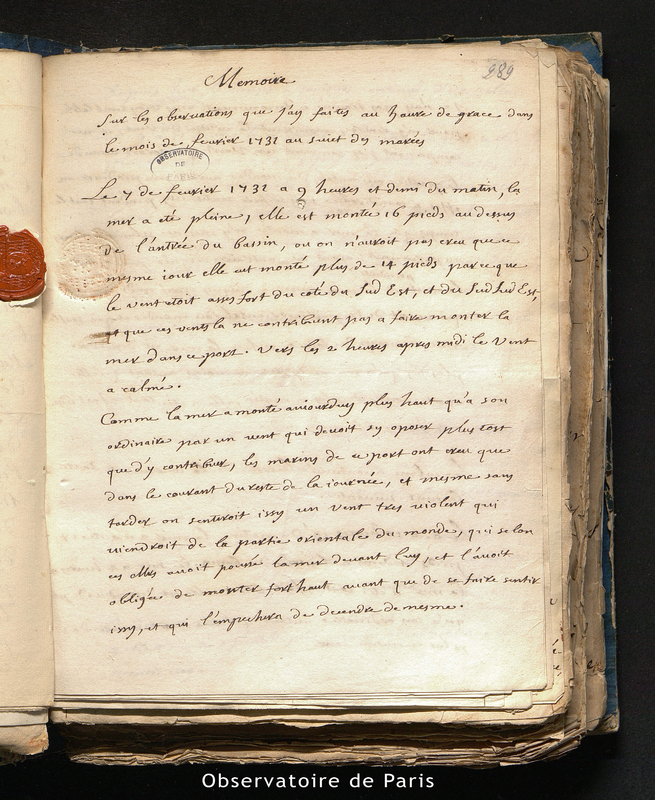 Memoire
289
sur les observations que j'ay faites au haure de grace dans
le mois de feurier 1732 au suiet des marées
OBSERVATOIRE
DE
PARIS
Le 7 de feurier 1732 a 9 heures et demi du matin, la
mer a eté pleine, elle est montée 16 pieds au dessus
de l'antrée du bassin, ou on n'auroit pas creu que ce
mesme iour elle eut monté plus de 14 pieds parce que
le vent etoit asses fort du coté du Sud Est, et du Sud Sud Est,
et que ces vents la ne contribuent pas a faire monter la
mer dans ce port. Vers les 2 heures apres midi le vent
a calmé.
Comme la mer a monté auiourduy plus haut qu'a son
ordinaire par un vent qui devoit sy oposer plus tost
que d'y contribuer, les marins de ce port ont creu que
dans le courant du reste de la iournée, et mesme sans
tarder on sentiroit issy un vent tres violent qui
viendroit de la partie orientale du monde, qui selon
ces Mrs avoit poussé la mer devant luy, et l'avoit
obligée de monter fort haut avant que de se faire sentir
issy, et qui l'empechera de decendre de mesme.
Observatoire de Paris